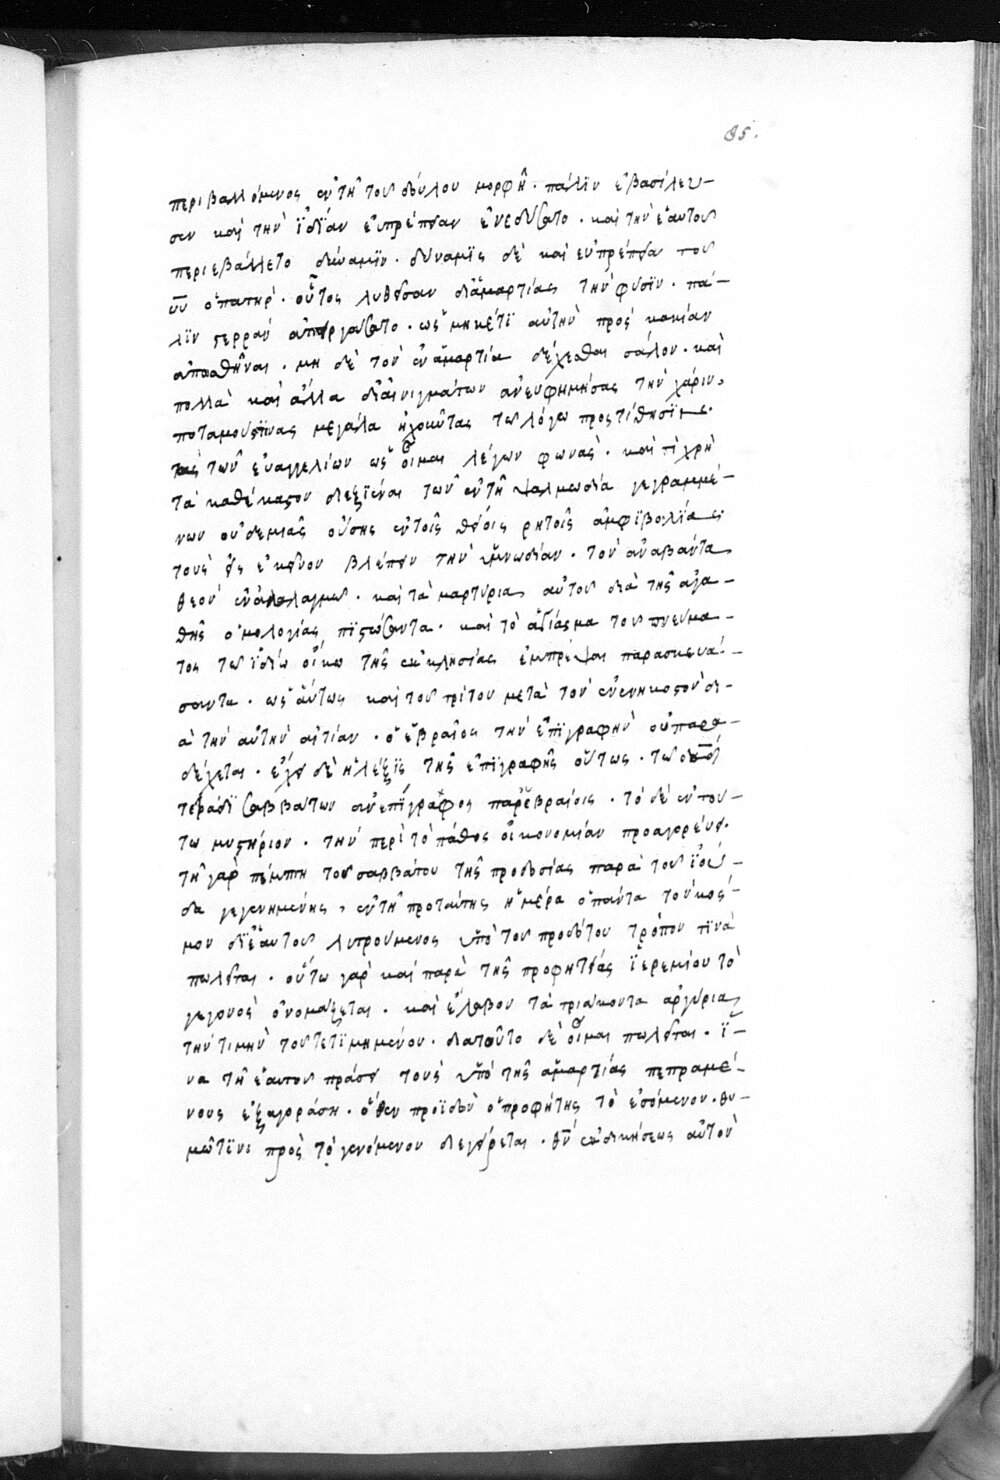 85.
περιβαλλόμενος ἐν τῆ τοῦ δούλου μορφῆ · πάλϊν ἐβασίλευ–
σεν καὶ τὴν ἰδίαν εὐπρέπειαν ἐνεδύσατο · καὶ τὴν ἑαυτοῦ
περιεβάλλετο δύναμϊν · δύναμϊς δὲ καὶ εὐπρέπεια τοῦ
υ̅υ̅ ὁ πατήρ · οὗτος λυθεῖσαν δι ἁμαρτίας τὴν φύσϊν · πά–
λϊν στερρὰν ἀπειργάσατο · ὡς μηκέτϊ αὐτὴν πρὸς κακίαν
ἀπωσθῆναι · μηδὲ τὸν ἐν ἁμαρτία δέχεσθαι σάλον · καὶ
πολλὰ καὶ ἄλλα δι αἰνιγμάτων ἀνευφημήσας τὴν χάριν,
ποταμούς τϊνας μεγάλα ἠχοῦντας τῶ λόγω προστίθησϊ
τὰς τῶν εὐαγγελίων ὡς οἶμαι λέγων φωνὰς · καὶ τί χρὴ
τὰ καθέκαστον διεξϊέναι τῶν ἐν τῆ ψαλμωδία γεγραμμέ–
νων οὐδεμιᾶς οὔσης ἐν τοῖς θείοις ῥητοῖς ἀμφϊβολίας
τοὺς εἰς ἐκεῖνον βλέπειν τὴν ὑμνωδίαν · τὸν ἀναβάντα
θεὸν ἐν ἀλαλαγμῶ · καὶ τὰ μαρτύρια αὐτοῦ διὰ τῆς ἀγα–
θῆς ὁμολογίας πϊστώσαντα · καὶ τὸ ἁγίασμα τοῦ πνεύμα–
τος τῶ ἰδίω οἴκω τῆς ἐκκλησίας ἐμπρέψαι παρασκευά–
σαντα · ὡσαύτως καὶ τοῦ τρίτου μετὰ τὸν ἐνενηκοστὸν δι–
ὰ τὴν αὐτὴν αἰτίαν · ὁ ἑβραῖος τὴν ἐπϊγραφὴν οὐ παρα–
δέχεται · ἔχει δὲ ἡ λέξϊς τῆς ἐπϊγραφῆς οὕτως · τῶ δα̅δ̅
τετράδϊ σαββάτων ἀνεπίγραφος παρ ἑβραίοις · τὸ δὲ ἐν του–
τω μυστήριον · τὴν περὶ τὸ πάθος οἰκονομίαν προαγορεύει ·
τῆ γὰρ πέμπτη τοῦ σαββάτου τῆς προδοσίας παρὰ τοῦ ἰού–
δα γεγενημένης, ἐν τῆ πρὸ ταύτης ἡμέρα ὁ πάντα τὸν κόσ–
μον δϊ ἑαυτοῦ λυτρούμενος ὑπὸ τοῦ προδότου τρόπον τϊνὰ
πωλεῖται · οὕτω γὰρ καὶ παρὰ τῆς προφητείας ἱερεμίου τὸ
γεγονὸς ὀνομάζεται · καὶ ἔλαβον τὰ τριάκοντα ἀργύρια,
τὴν τιμὴν τοῦ τετϊμημένου · διατοῦτο δὲ οἶμαι πωλεῖται · ἵ–
να τῆ ἑαυτοῦ πράσει τοὺς ὑπὸ τῆς ἁμαρτίας πεπραμέ–
νους ἐξαγοράση · ὅθεν προϊδὼν ὁ προφήτης τὸ ἐσόμενον · θυ–
μῶ τϊνι πρὸς τὸ γενόμενον διεγείρεται · θ̅ν̅ ἐκδικήσεως αὐτὸν